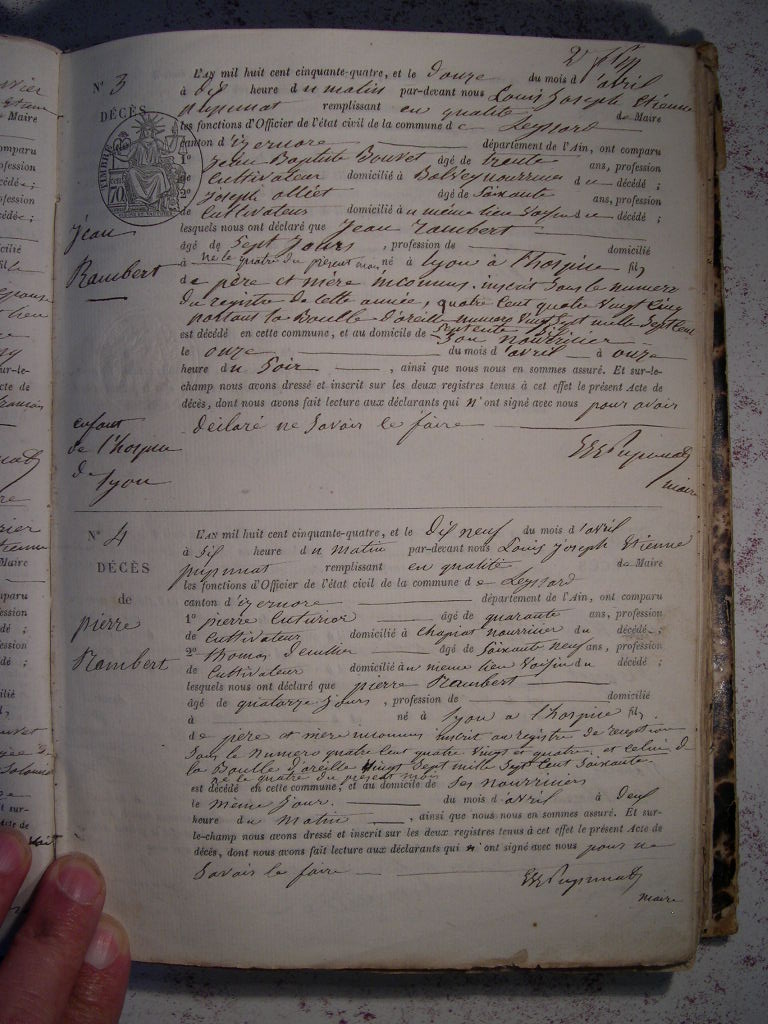 N° 3
DÉCÈS
TIMBRE
70
jean
Rambert
enfant
de l'hospice
de
Lyon
L'AN mil huit cent cinquante-quatre, et le Douze du mois d'avril
à dix heure du matin par-devant nous Louis Joseph Etienne
pupunat remplissant en qualité de Maire
les fonctions d'Officier de l'état civil de la commune de Leyssard
canton d'izernore département de l'Ain, ont comparu
1° Jean Baptiste Bouvet âgé de trente ans, profession
de Cultivateur domicilié à Balvey nourricier du décédé ;
2° Joseph alliet âgé de Soixante ans, profession
de Cultivateur domicilié au meme lieu Voisin du décédé ;
lesquels nous ont déclaré que Jean Rambert
âgé de Sept Jours, profession de domicilié
à né le quatre du présent mois né à Lyon à l'hospice fils
de père et mère inconnus, inscrit Sous le numero
du registre de cette année, quatre Cent quatre Vingt Cinq
portant la Boulle d'oreille numero Vingt Sept mille Sept Cent
est décédé en cette commune, et au domicile de Son nourricier
le onze du mois d'avril à onze
heure du Soir, ainsi que nous nous en sommes assuré. Et sur-le-
champ nous avons dressé et inscrit sur les deux registres tenus à cet effet le présent Acte de
décès, dont nous avons fait lecture aux déclarants qui n'ont signé avec nous pour avoir
déclaré ne Savoir le faire
Pupunat
maire
N° 4
DÉCÈS
de
pierre
Rambert
L'AN mil huit cent cinquante-quatre, et le Dix neuf du mois d'avril
à Six heure du matin par-devant nous Louis joseph Etienne
pupunat remplissant en qualité de Maire
les fonctions d'Officier de l'état civil de la commune de Leyssard
canton d'izernore département de l'Ain, ont comparu
1° pierre Cuturier âgé de quarante ans, profession
de Cultivateur domicilié à Chapiat nourricier du décédé ;
2° thomas âgé de Soixante neuf ans, profession
de Cultivateur domicilié au meme lieu Voisin du décédé ;
lesquels nous ont déclaré que pierre Rambert
âgé de quatorze Jours, profession de domicilié
à né à Lyon a l'hospice fils
de père et mere inconnus inscrit au registre de reception
Sous le numero quatre Cent quatre Vingt et quatre, et Celui de
la Boulle d'oreille Vingt Sept mille Sept Cent Soixante
né le quatre du présent mois
est décédé en cette commune, et au domicile de Ses nourriciers
le même Jour du mois d'avril à deux
heure du matin, ainsi que nous nous en sommes assuré. Et sur-
le-champ nous avons dressé et inscrit sur les deux registres tenus à cet effet le présent Acte de
décès, dont nous avons fait lecture aux déclarants qui n'ont signé avec nous pour ne
Savoir le faire
Pupunat
maire